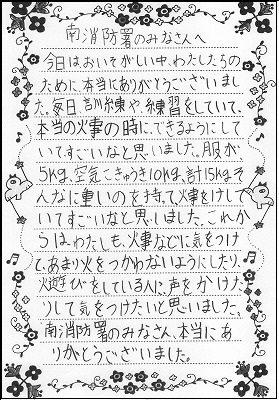 南消防署のみなさんへ
今日はおいそがしい中、わたしたちの
ために、本当にありがとうございまし
た。毎日訓練や練習をしていて、
本当の火事の時に、できるようにして
いてすごいなと思いました。服が
5kg、空気こきゅうき10kg、計15kgそ
んなに重いのを持て、火事をけして
いてすごいなと思いました。これか
らはわたしも、火事などに気をつけ
て、あまり火をつかわないようにしたり、
火遊びをしている人に、声をかけた
りして気をつけたいと思いました。
南消防署のみなさん、本当にあ
りがとうございました。